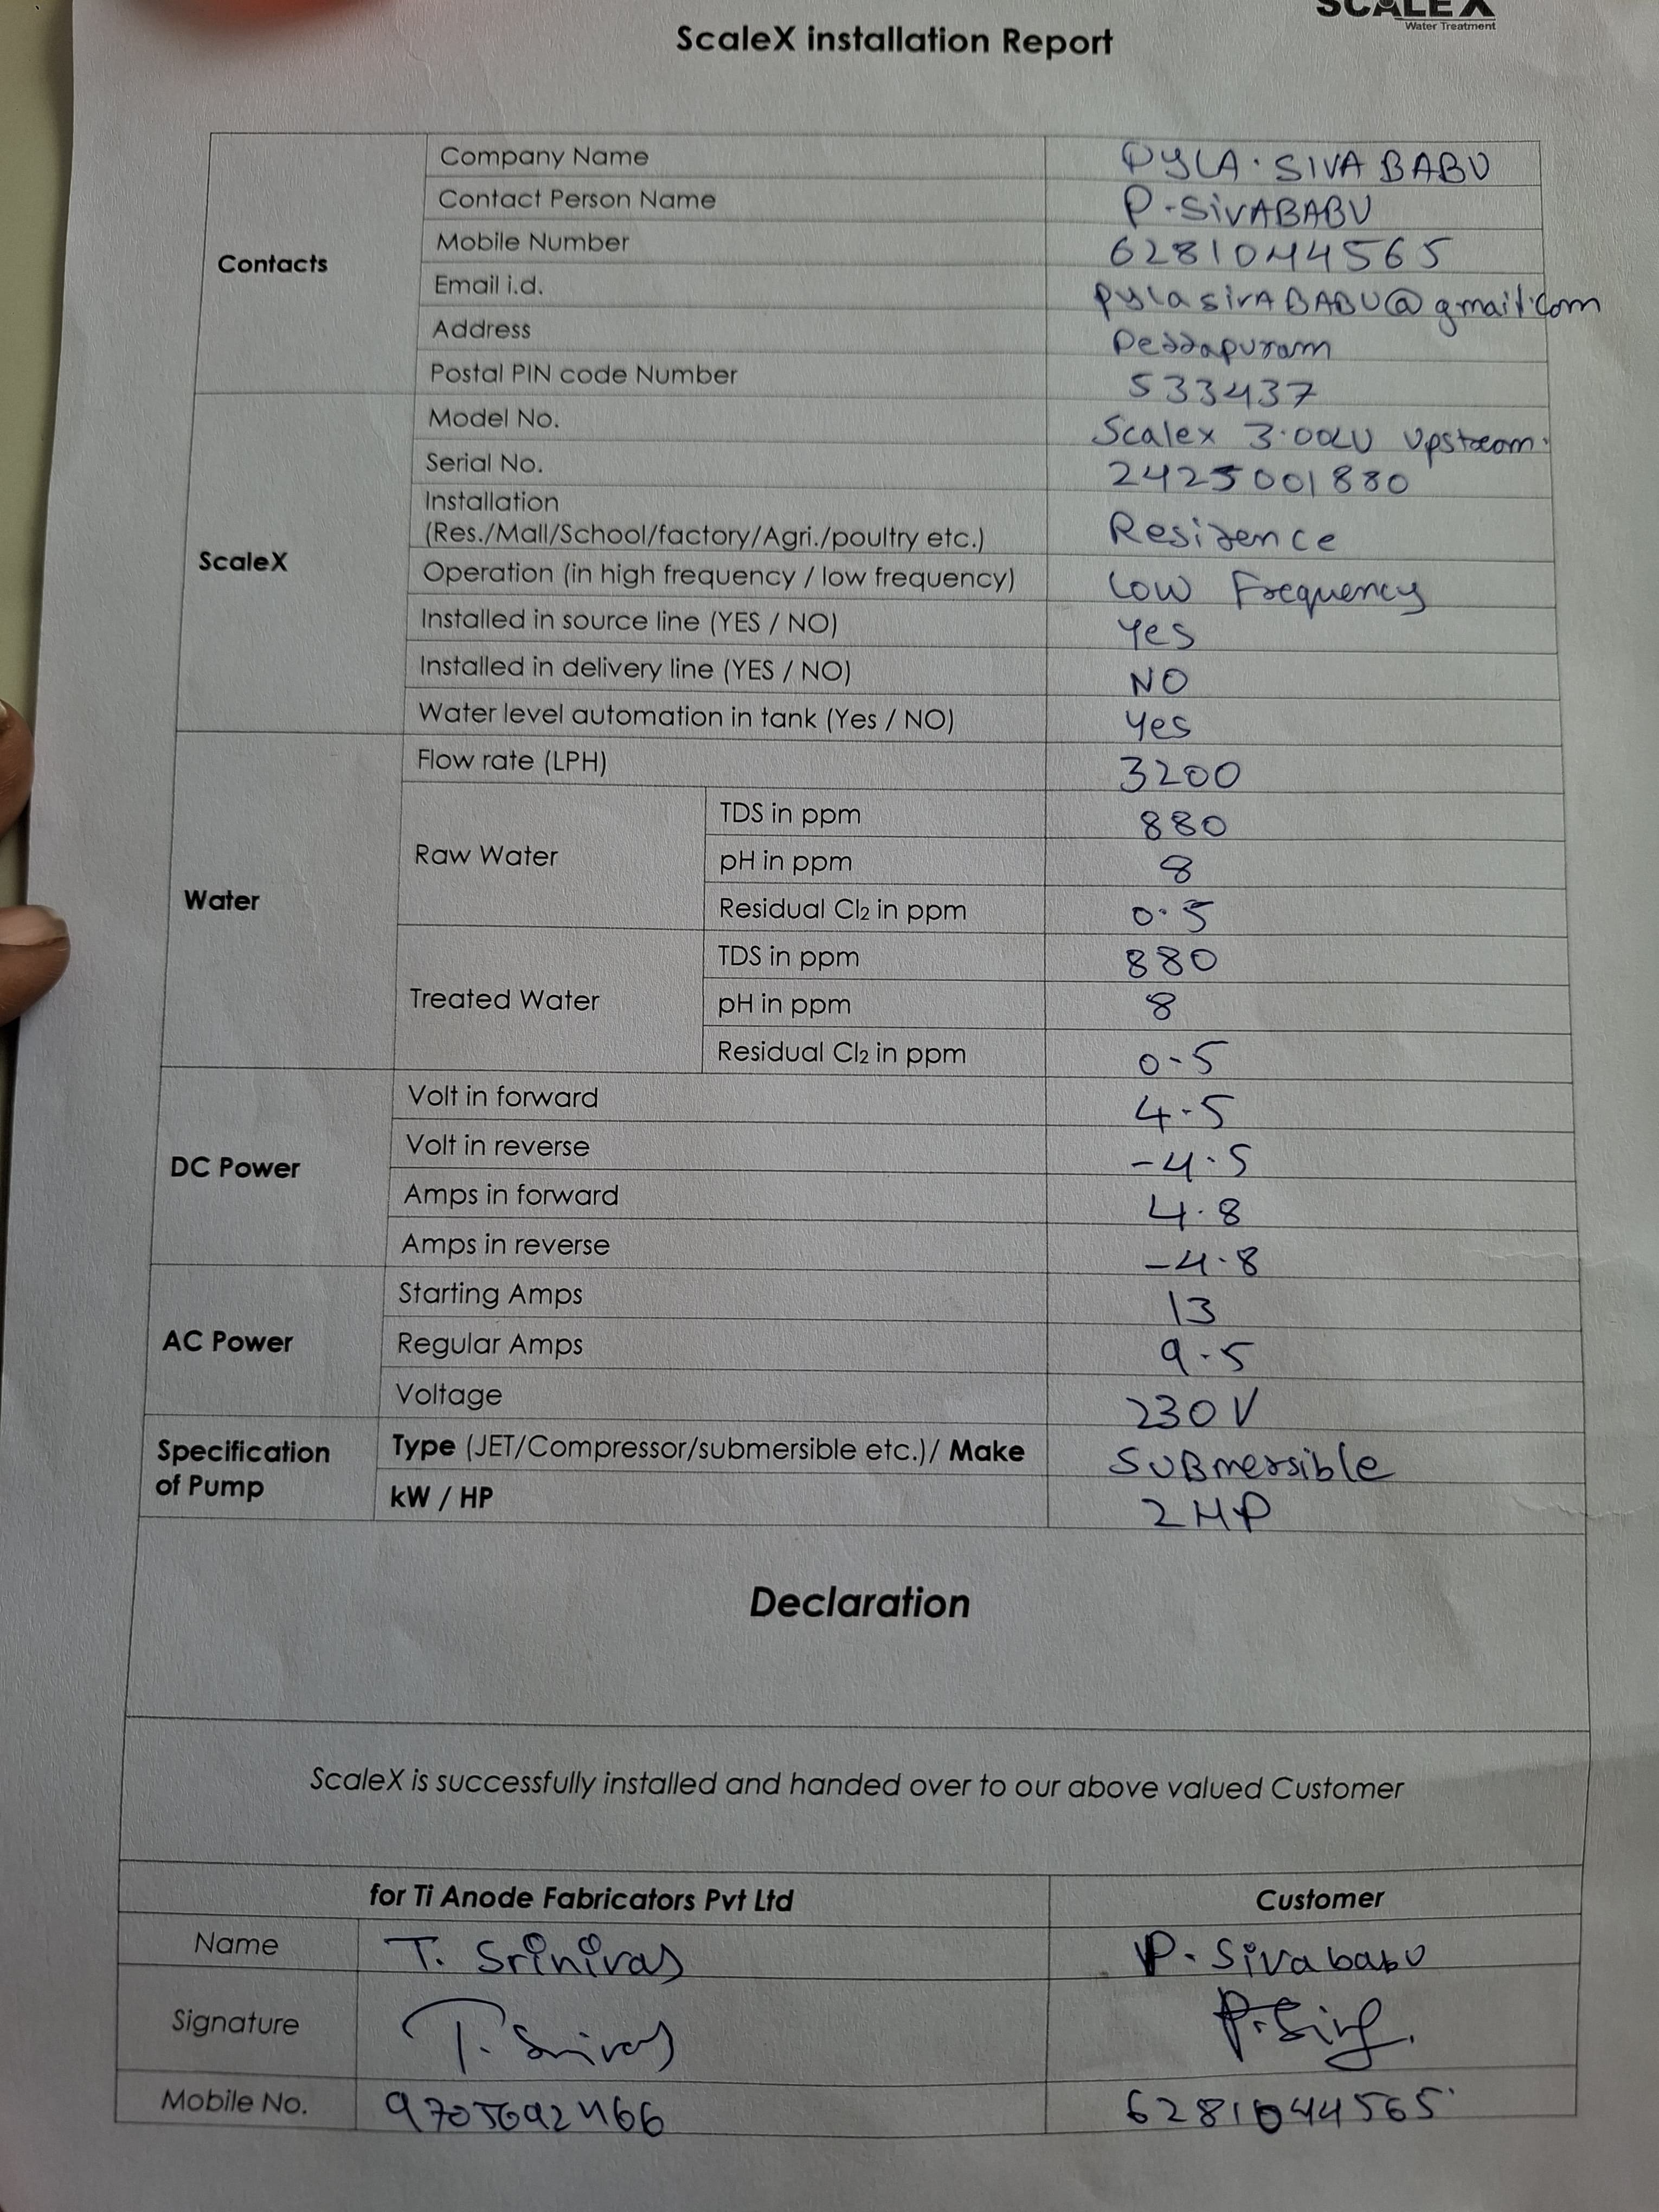 SCALEX
Water Treatment
ScaleX installation Report
Contacts
Company Name PYLA. SIVA BABU
Contact Person Name P-SivABABU
Mobile Number 6281044565
Email i.d. pylasivABABU@gmail.com
Address Peddapuram
Postal PIN code Number 533437
ScaleX
Model No. Scalex 3.00LU Upstream.
Serial No. 2425001880
Installation
(Res./Mall/School/factory/Agri./poultry etc.) Residence
Operation (in high frequency / low frequency) Low Frequency
Installed in source line (YES / NO) Yes
Installed in delivery line (YES / NO) NO
Water level automation in tank (Yes / NO) Yes
Water
Flow rate (LPH) 3200
Raw Water
TDS in ppm 880
pH in ppm 8
Residual Cl2 in ppm 0.5
Treated Water
TDS in ppm 880
pH in ppm 8
Residual Cl2 in ppm 0-5
DC Power
Volt in forward 4.5
Volt in reverse -4.5
Amps in forward 4.8
Amps in reverse -4.8
AC Power
Starting Amps 13
Regular Amps 9.5
Voltage 230V
Specification
of Pump
Type (JET/Compressor/submersible etc.)/ Make SUBmersible
kW / HP 2HP
Declaration
ScaleX is successfully installed and handed over to our above valued Customer
for Ti Anode Fabricators Pvt Ltd Customer
Name T. Srinivas P. Sivababu
Signature T. Srinivas
Mobile No. 9705692466 6281044565